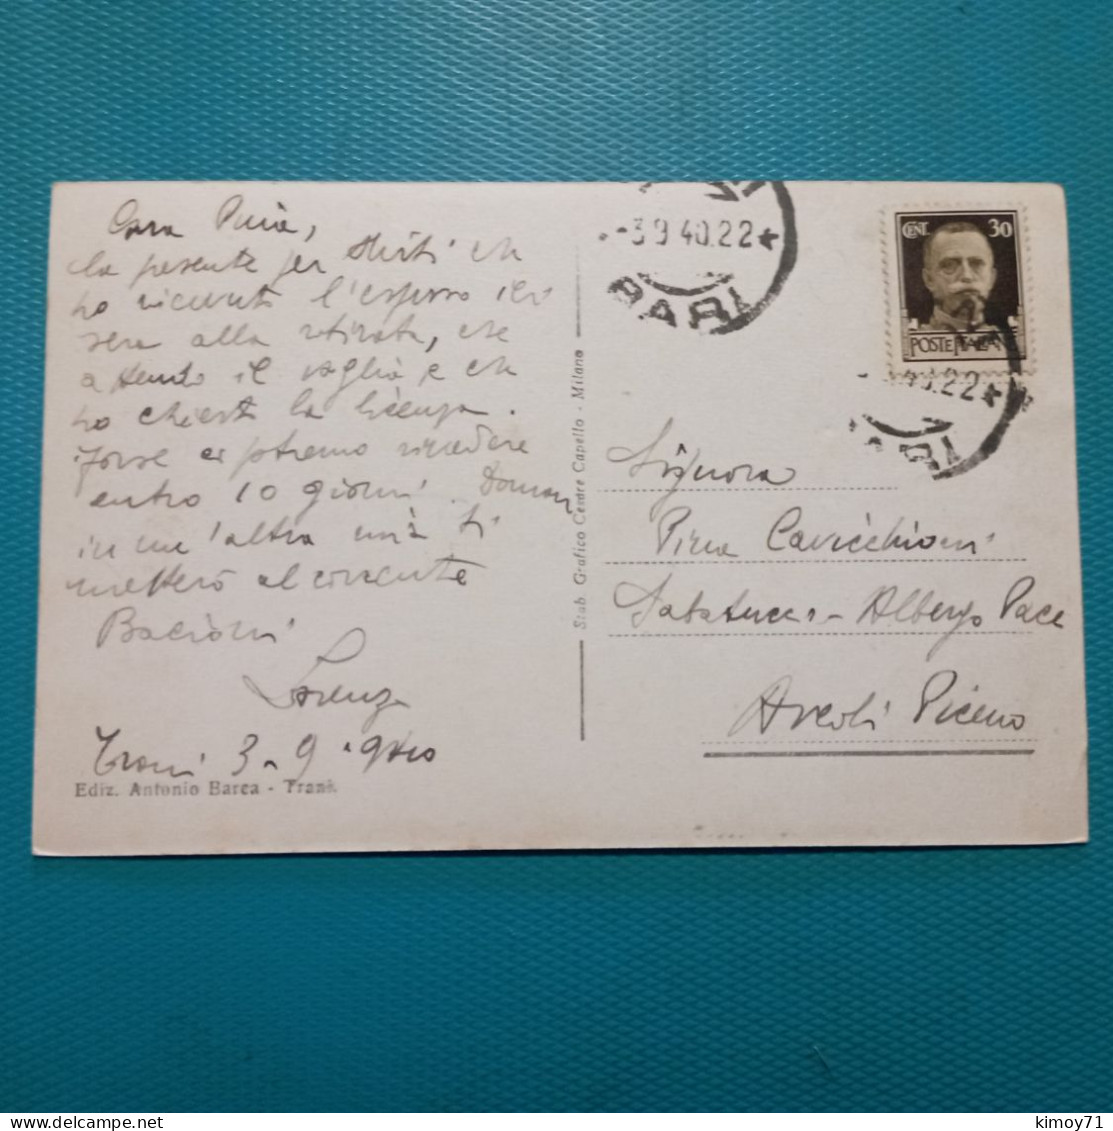 Cara Pina,
la presente per dirti che
ho ricevuto l'espresso ieri
sera alla ritirata, che
attendo il vaglia e che
ho chiesto la licenza.
Forse ci potremo rivedere
entro 10 giorni. Doman
in un'altra mia ti
metterò al corrente
Bacioni
Lorenzo
Trani 3-9-940
Ediz. Antonio Barca - Trani.
Stab. Grafico Cesare Capello - Milano
-3.9.40.22
BARI
CENT. 30
POSTE ITALIANE
40.22
BARI
Signora
Pina Cavicchioni
Sabatucci - Albergo Pace
Ascoli Piceno
kimoy71